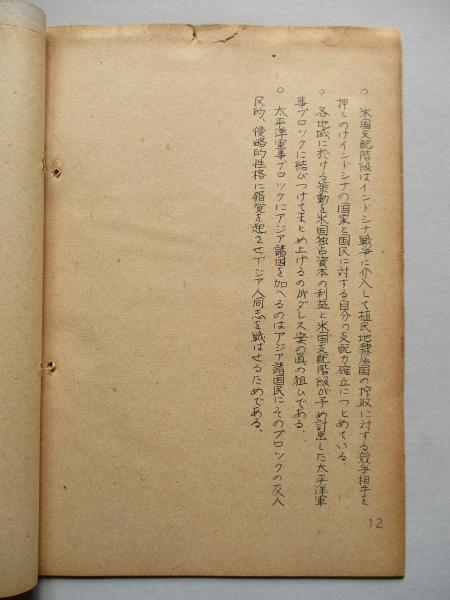 ○ 米国支配階級はインドシナ戦争に介入して植民地隷属国の搾取に対する競争相手を
押しのけインドシナの国家と国民に対する自分の支配力確立につとめている.
○ 各地域に於ける策動を米国独占資本の利益と米国支配階級が予め計画した太平洋軍
事ブロックに結びつけてまとめ上げるのがダレス案の真の狙ひである.
○ 太平洋軍事ブロックにアジア諸国を加へるのはアジア諸国民にそのブロックの反人
民的、侵略的性格に錯覚を起させアジア人同志を戦はせるためである.
12